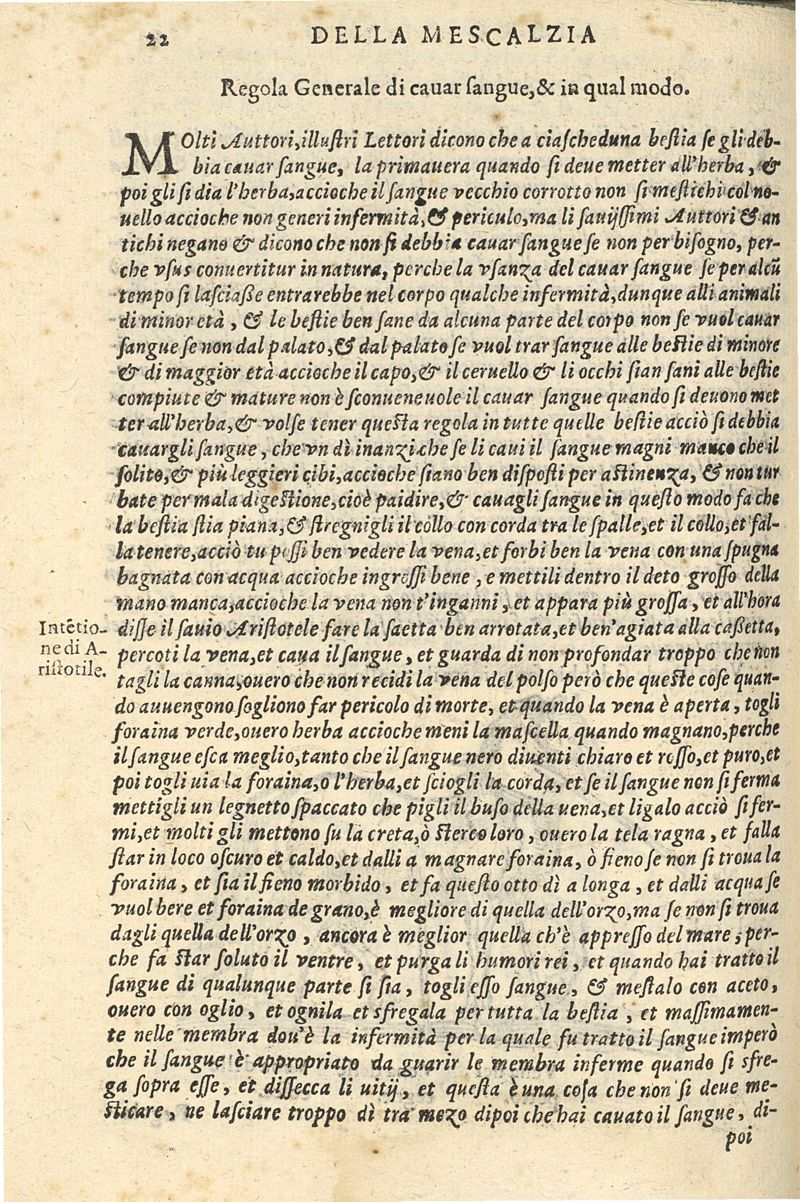 22
DELLA MESCALZIA
Regola Generale di cauar ſangue,& in qual modo.
MOlti Auttori,illuſtri Lettori dicono che a ciaſcheduna beſtia ſe gli deb-
bia cauar ſangue, la primauera quando ſi deue metter all'herba, &
poi gli ſi dia l'herba,accioche il ſangue vecchio corrotto non ſi meſtichi col no-
uello accioche non generi infermità,& periculo,ma li ſauijſſimi Auttori & an
tichi negano & dicono che non ſi debbia cauar ſangue ſe non per biſogno, per-
che vſus conuertitur in natura, perche la vſanza del cauar ſangue ſe per alcũ
tempo ſi laſciaſſe entrarebbe nel corpo qualche infermità,dunque alli animali
di minor età, & le beſtie ben ſane da alcuna parte del corpo non ſe vuol cauar
ſangue ſe non dal palato,& dal palato ſe vuol trar ſangue alle beſtie di minore
& di maggior età accioche il capo,& il ceruello & li occhi ſian ſani alle beſtie
compiute & mature non è ſconueneuole il cauar ſangue quando ſi deuono met
ter all'herba,& volſe tener queſta regola in tutte quelle beſtie acciò ſi debbia
cauargli ſangue, che vn dì inanzi che ſe li caui il ſangue magni manco che il
ſolito,& più leggieri cibi,accioche ſiano ben diſpoſti per aſtinenza, & non tur
bate per mala digeſtione,cioè paidire,& cauagli ſangue in queſto modo fa che
la beſtia ſtia piana,& ſtregnigli il collo con corda tra le ſpalle,et il collo,et fal-
la tenere,acciò tu poſſi ben vedere la vena,et forbi ben la vena con una ſpugna
bagnata con acqua accioche ingroſſi bene, e mettili dentro il deto groſſo della
mano manca,accioche la vena non t'inganni, et appara più groſſa, et all'hora
Intẽtio-
ne di A-
riſtotile.
diſſe il ſauio Ariſtotele fare la ſaetta ben arrotata,et ben'agiata alla caſſetta,
percoti la vena,et caua il ſangue, et guarda di non profondar troppo che non
tagli la canna,ouero che non recidi la vena del polſo però che queſte coſe quan-
do auuengono ſogliono far pericolo di morte, et quando la vena è aperta, togli
foraina verde,ouero herba accioche meni la maſcella quando magnano,perche
il ſangue eſca meglio,tanto che il ſangue nero diuenti chiaro et roſſo,et puro,et
poi togli uia la foraina,o l'herba,et ſciogli la corda, et ſe il ſangue non ſi ferma
mettigli un legnetto ſpaccato che pigli il buſo della uena,et ligalo acciò ſi fer-
mi,et molti gli mettono ſu la creta,ò ſterco loro, ouero la tela ragna, et falla
ſtar in loco oſcuro et caldo,et dalli a magnare foraina, ò fieno ſe non ſi troua la
foraina, et ſia il fieno morbido, et fa queſto otto dì a longa, et dalli acqua ſe
vuol bere et foraina de grano,è megliore di quella dell'orzo,ma ſe non ſi troua
dagli quella dell'orzo, ancora è meglior quella ch'è appreſſo del mare, per-
che fa ſtar ſoluto il ventre, et purga li humori rei, et quando hai tratto il
ſangue di qualunque parte ſi ſia, togli eſſo ſangue, & meſtalo con aceto,
ouero con oglio, et ognila et sfregala per tutta la beſtia, et maſſimamen-
te nelle membra dou'è la infermità per la quale fu tratto il ſangue imperò
che il ſangue è appropriato da guarir le membra inferme quando ſi sfre-
ga ſopra eſſe, et diſſecca li uitij, et queſta è una coſa che non ſi deue me-
ſticare, ne laſciare troppo dì tra mezo dipoi che hai cauato il ſangue, di-
poi